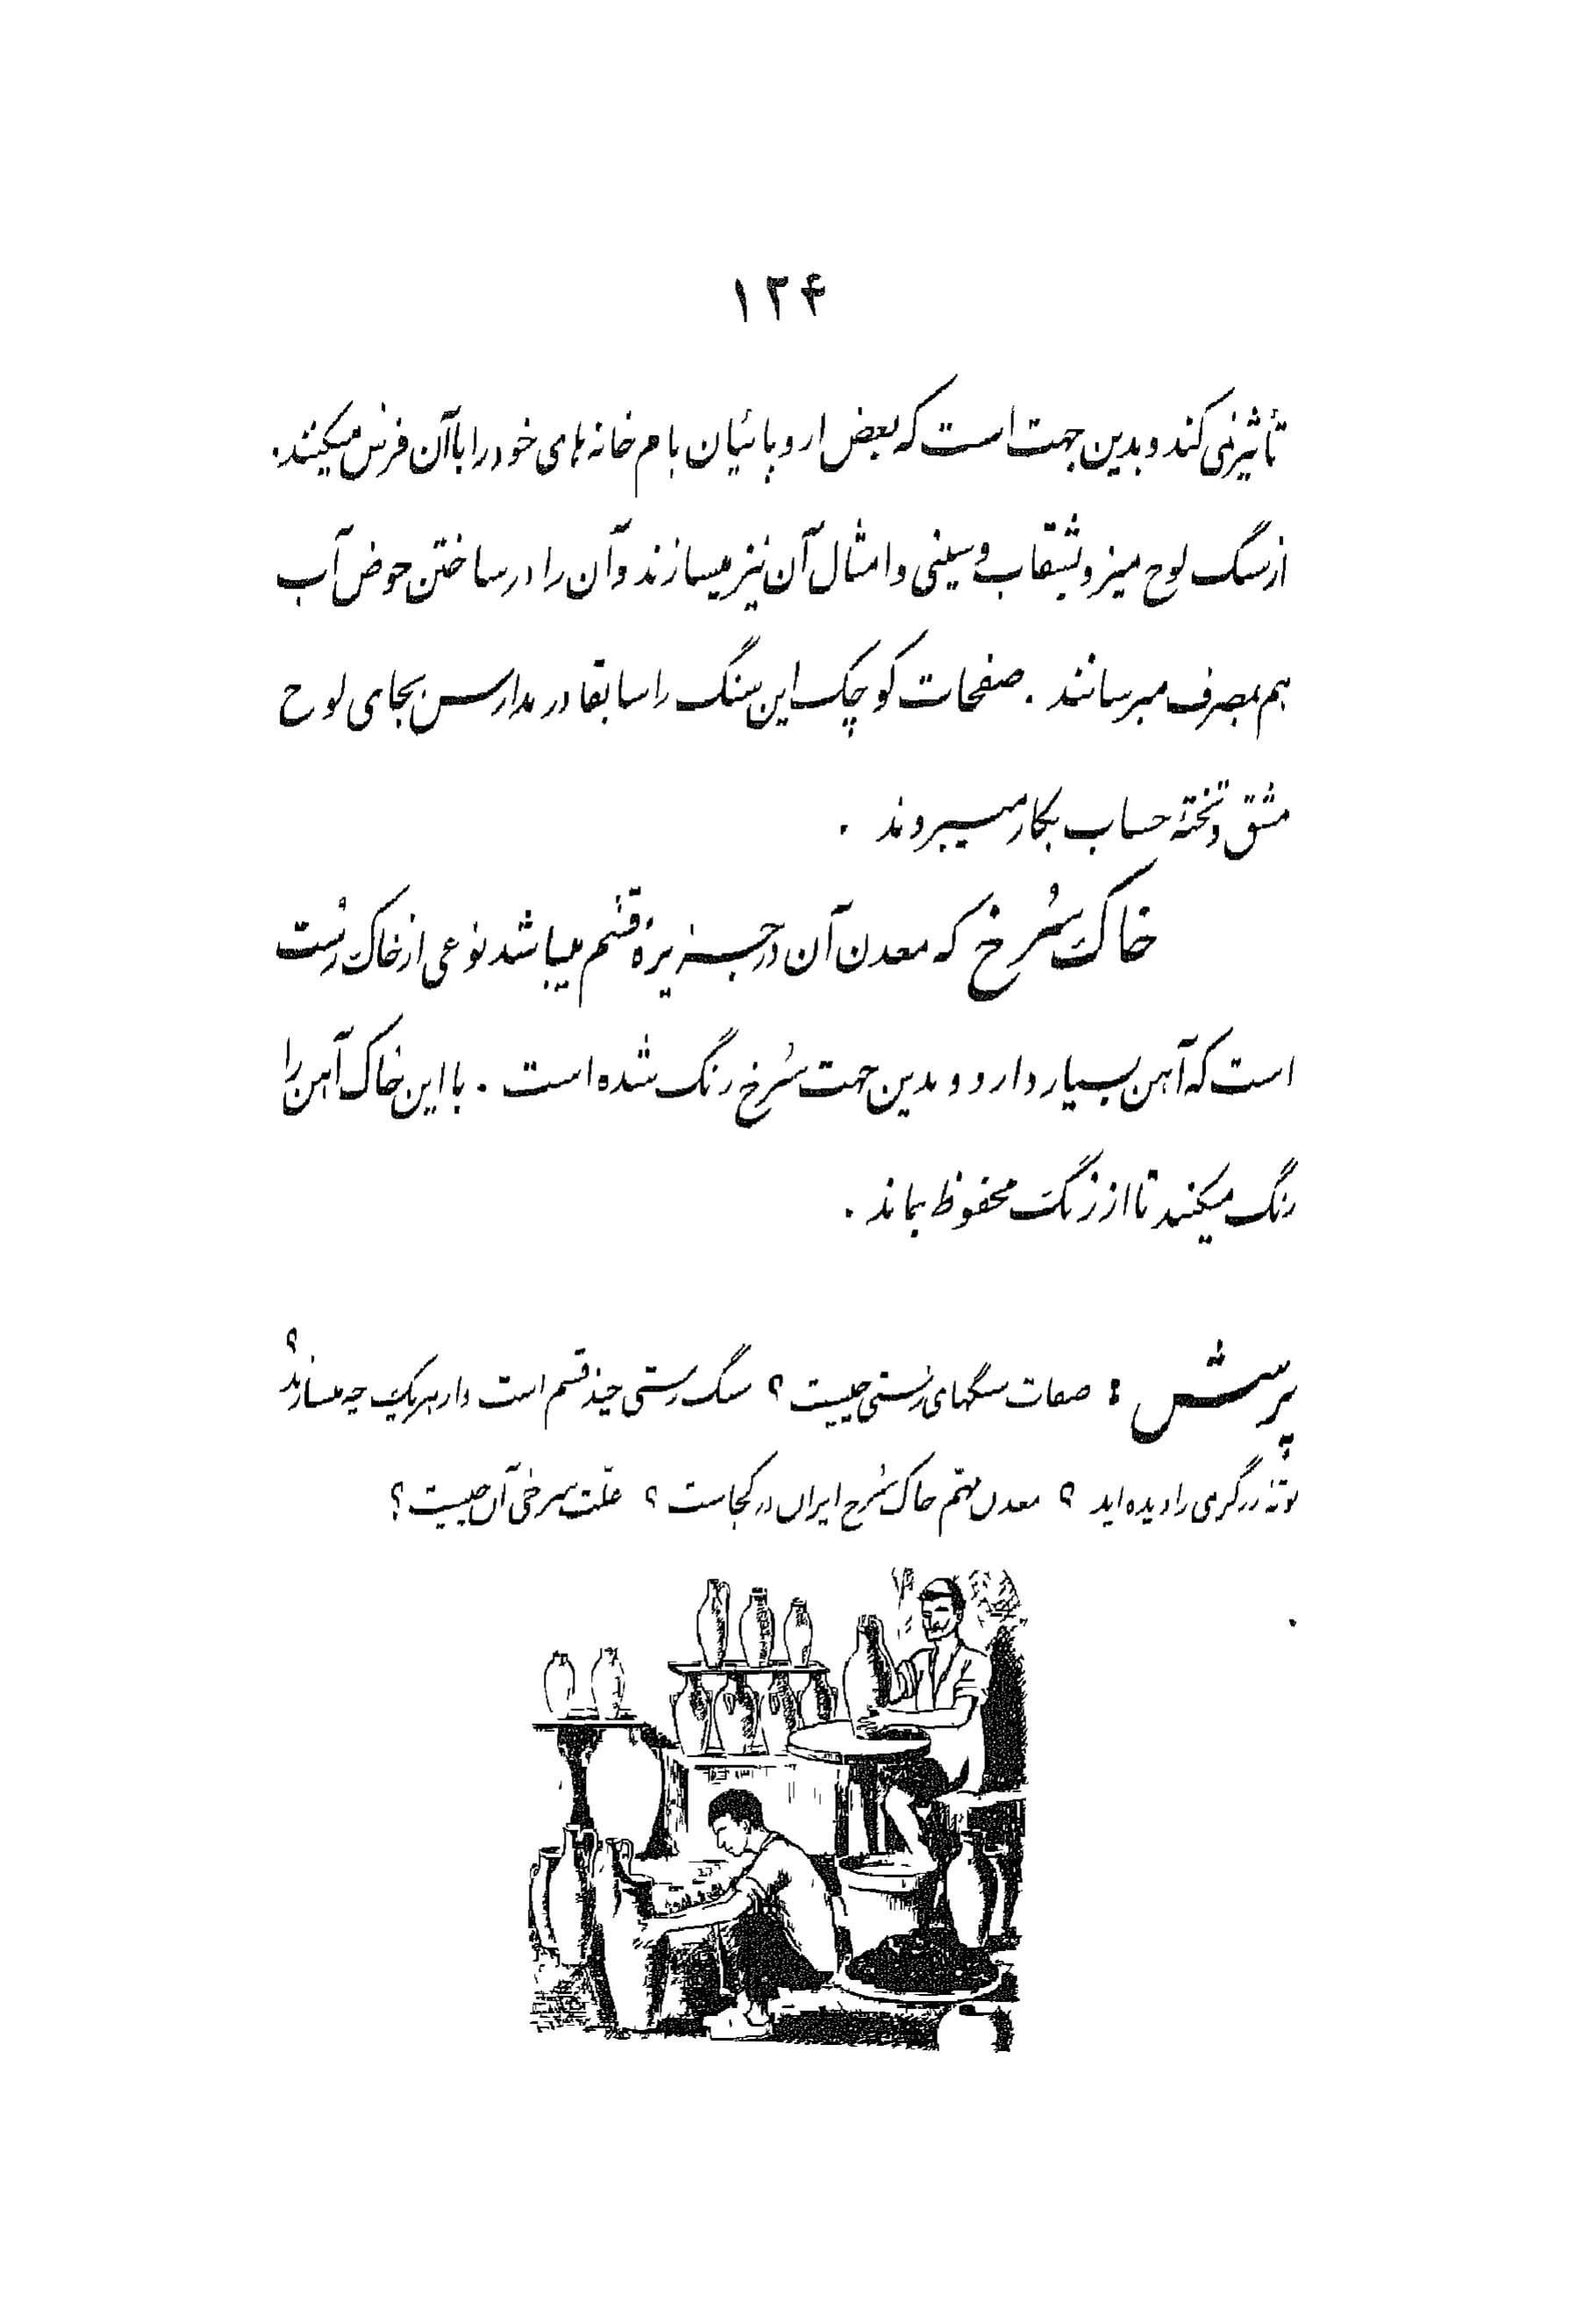 ۱۲۴
تأثیر نمی کند و بدین جهت است که بعض اروپائیان بام خانه های خود را با آن فرش میکنند.
از سنگ لوح میز و بشقاب و سینی و امثال آن نیز میسازند و آن را در ساختن حوض آب
هم بمصرف میرسانند . صفحات کوچک این سنگ را سابقا در مدارس بجای لوح
مشق و تختهٔ حساب بکار میبردند .
خاک سُرخ که معدن آن در جزیرهٔ قشم میباشد نوعی از خاک رُست
است که آهن بسیار دارد و بدین جهت سُرخ رنگ شده است . با این خاک آهن را
رنگ میکنند تا از زنگ محفوظ بماند .
پرسش : صفات سنگهای رُستی چیست ؟ سنگ رستی چند قسم است و از هر یک چه میسازند ؟
بوتهٔ زرگری را دیده اید ؟ معدن مهّم خاک سُرخ ایران در کجاست ؟ علّت سرخی آن چیست ؟